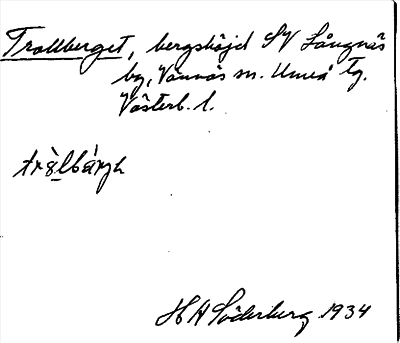 Trollberget, bergshöjd SV Långnäs
by, Vännäs sn. Umeå tg.
Västerb. l.
HA Söderberg 1934